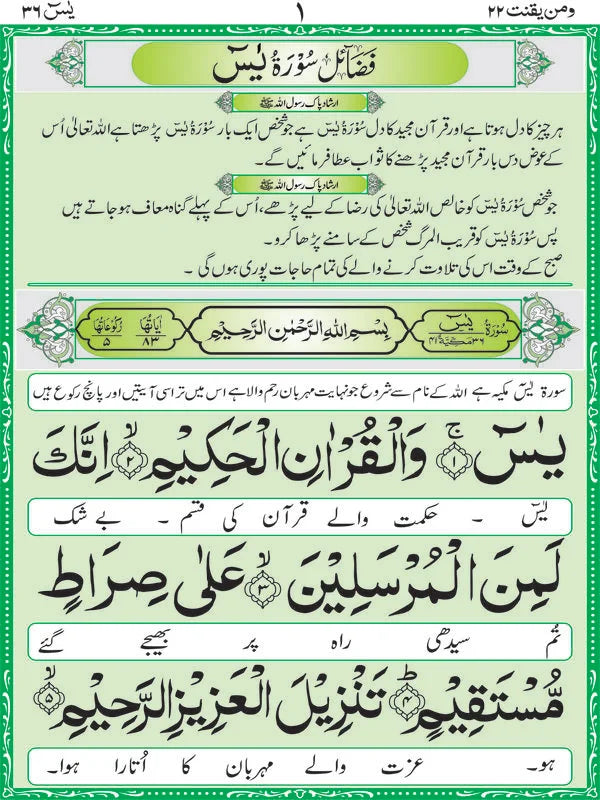 ومن یقنت ۲۲
۱
یٰسٓ ۳۶
فَضَائِل سُوْرَۃُ یٰسٓ
ارشاد پاک رسول اللہ ﷺ
ہر چیز کا دل ہوتا ہے اور قرآن مجید کا دل سُوْرَۃُ یٰسٓ ہے جو شخص ایک بار سُوْرَۃُ یٰسٓ پڑھتا ہے اللہ تعالیٰ اُس
کے عوض دس بار قرآن مجید پڑھنے کا ثواب عطا فرمائیں گے۔
ارشاد پاک رسول اللہ ﷺ
جو شخص سُوْرَۃُ یٰسٓ کو خالص اللہ تعالیٰ کی رضا کے لیے پڑھے، اُس کے پہلے گناہ معاف ہو جاتے ہیں
پس سُوْرَۃُ یٰسٓ کو قریب المرگ شخص کے سامنے پڑھا کرو۔
صبح کے وقت اس کی تلاوت کرنے والے کی تمام حاجات پوری ہوں گی ۔
سُوْرَۃُ یٰسٓ ۳۶ مَکِّیَّۃٌ ۴۱
بِسْمِ اللهِ الرَّحْمٰنِ الرَّحِیْمِ
اٰیَاتُهَا ۸۳
رُکُوْعَاتُهَا ۵
سورۃ یٰسٓ مکیہ ہے اللہ کے نام سے شروع جو نہایت مہربان رحم والا ہے اس میں تراسی آیتیں اور پانچ رکوع ہیں
یٰسٓ ۚ﴿۱﴾ وَالْقُرْاٰنِ الْحَكِیْمِ ۙ﴿۲﴾ اِنَّكَ
یٰسٓ ۔ حکمت والے قرآن کی قسم ۔ بے شک
لَمِنَ الْمُرْسَلِیْنَ ۙ﴿۳﴾ عَلٰی صِرَاطٍ
تُم سیدھی راہ پر بھیجے گئے
مُّسْتَقِیْمٍ ؕ﴿۴﴾ تَنْزِیْلَ الْعَزِیْزِ الرَّحِیْمِ ۙ﴿۵﴾
ہو۔ عزت والے مہربان کا اُتارا ہوا۔